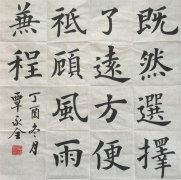 既然選擇
了遠方便
祗顧風雨
兼程
丁酉冬月
覃全